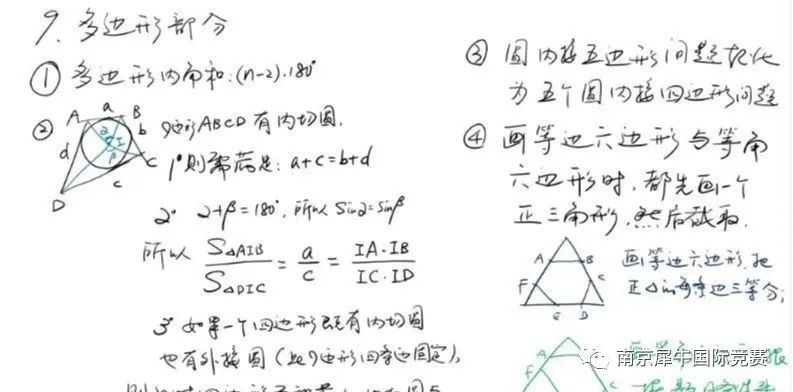 9. 多边形部分
① 多边形内角和: (n-2)·180°
② 四边形ABCD有内切圆.
A a B
b
d
α I
β
C
c
D
1° 则需满足: a+c=b+d
2° α+β=180°, 所以 sinα=sinβ
所以 S△AIB / S△DIC = a / c = IA·IB / IC·ID
3° 如果一个四边形既有内切圆
也有外接圆(此四边形四条边固定),
③ 圆内接五边形问题转化
为五个圆内接四边形问题
④ 画等边六边形与等角
六边形时, 都先画一个
正三角形, 然后截取.
A B
F C
E D
画等边六边形, 把
正△的每条边三等分;
A
F
南京犀牛国际竞赛